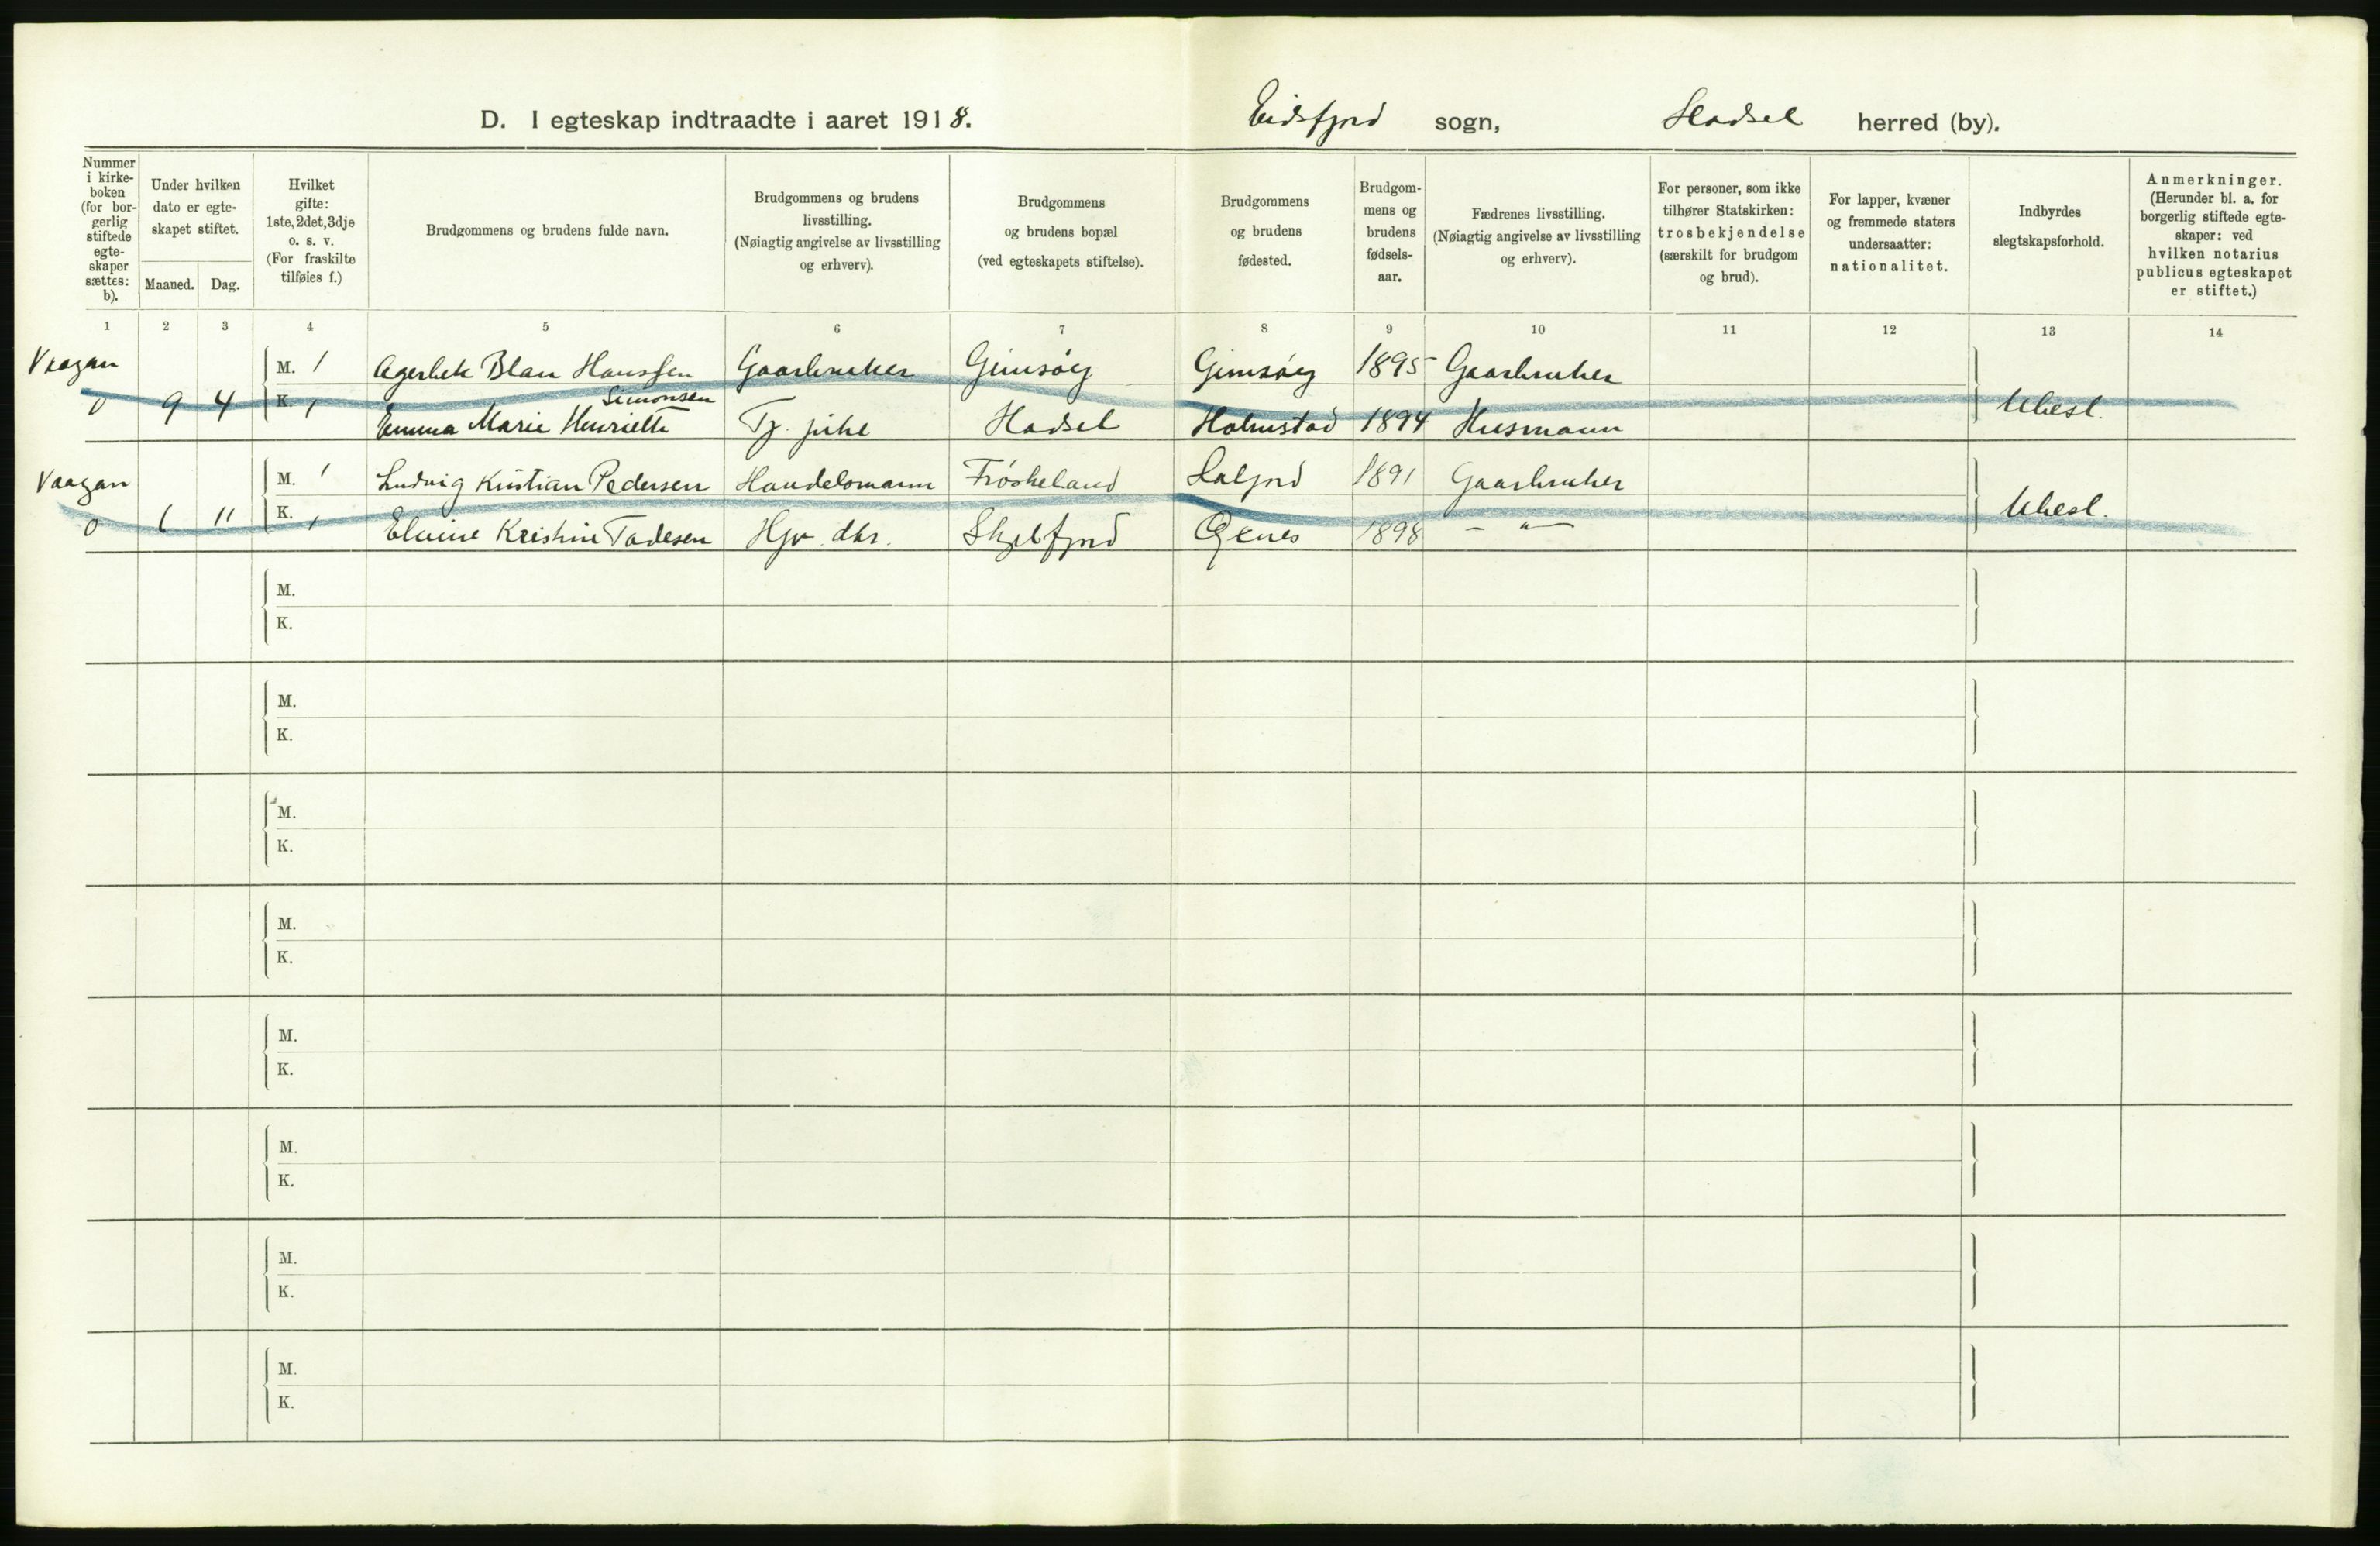 D. I egteskap indtraadte i aaret 1918. Eidsfjord sogn, Hadsel herred (by).
Nummer i kirke-boken (for bor-gerlig stiftede egte-skaper sættes: b).
Under hvilken dato er egte-skapet stiftet.
Maaned. Dag.
Hvilket gifte: 1ste, 2det, 3dje o. s. v. (For fraskilte tilføies f.)
Brudgommens og brudens fulde navn.
Brudgommens og brudens livsstilling. (Nøiagtig angivelse av livsstilling og erhverv).
Brudgommens og brudens bopæl (ved egteskapets stiftelse).
Brudgommens og brudens fødested.
Brudgom-mens og brudens fødsels-aar.
Fædrenes livsstilling. (Nøiagtig angivelse av livsstilling og erhverv).
For personer, som ikke tilhører Statskirken: trosbekjendelse (særskilt for brudgom og brud).
For lapper, kvæner og fremmede staters undersaatter: nationalitet.
Indbyrdes slegtskapsforhold.
Anmerkninger. (Herunder bl. a. for borgerlig stiftede egte-skaper: ved hvilken notarius publicus egteskapet er stiftet.)
1 2 3 4 5 6 7 8 9 10 11 12 13 14
Vaagan M. 1 Agerbek Blau Hanssen Gaarbruker Gimsøy Gimsøy 1895 Gaarbruker
0 9 4 K. 1 Emma Marie Henriette Simonsen Tj. pike Hadsel Holmstad 1894 Husmann Ubesl.
Vaagan M. 1 Ludvig Kristian Pedersen Handelsmann Frøskeland 1891 Gaarbruker
0 6 11 K. 1 Elvine Kristine Tadesen Hjv. dtr. Skjelfjord 1898 - " - Ubesl.
M.
K.
M.
K.
M.
K.
M.
K.
M.
K.
M.
K.
M.
K.
M.
K.